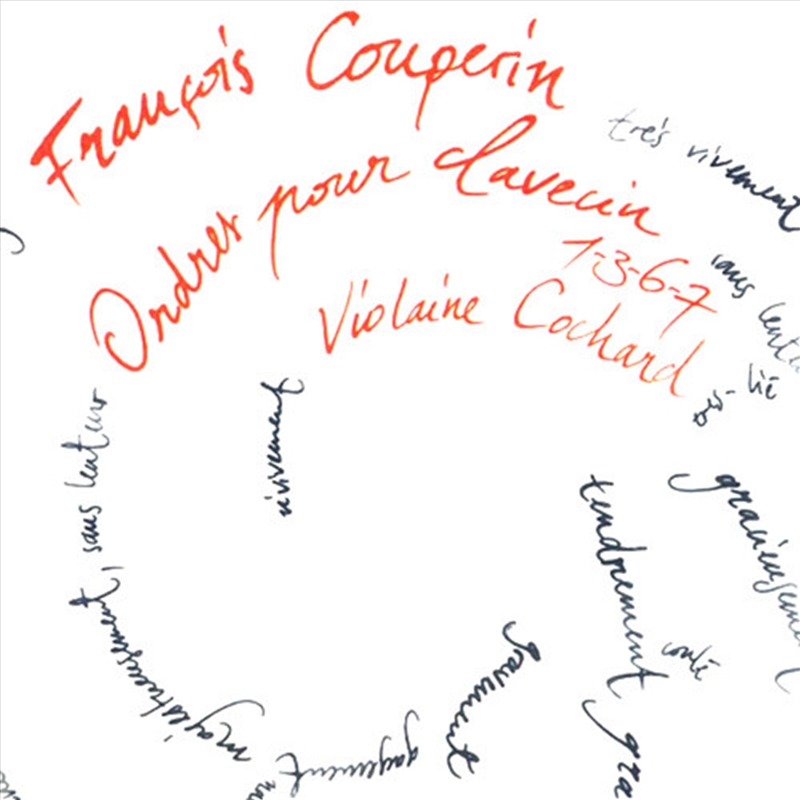 François Couperin
Ordres pour clavecin
1-3-6-7
Violaine Cochard
très vivement
sans lenteu
lié
gracieusement
tendrement
coulé
gra
vivement
majestueusement, sans lenteur
gayement
gaiement